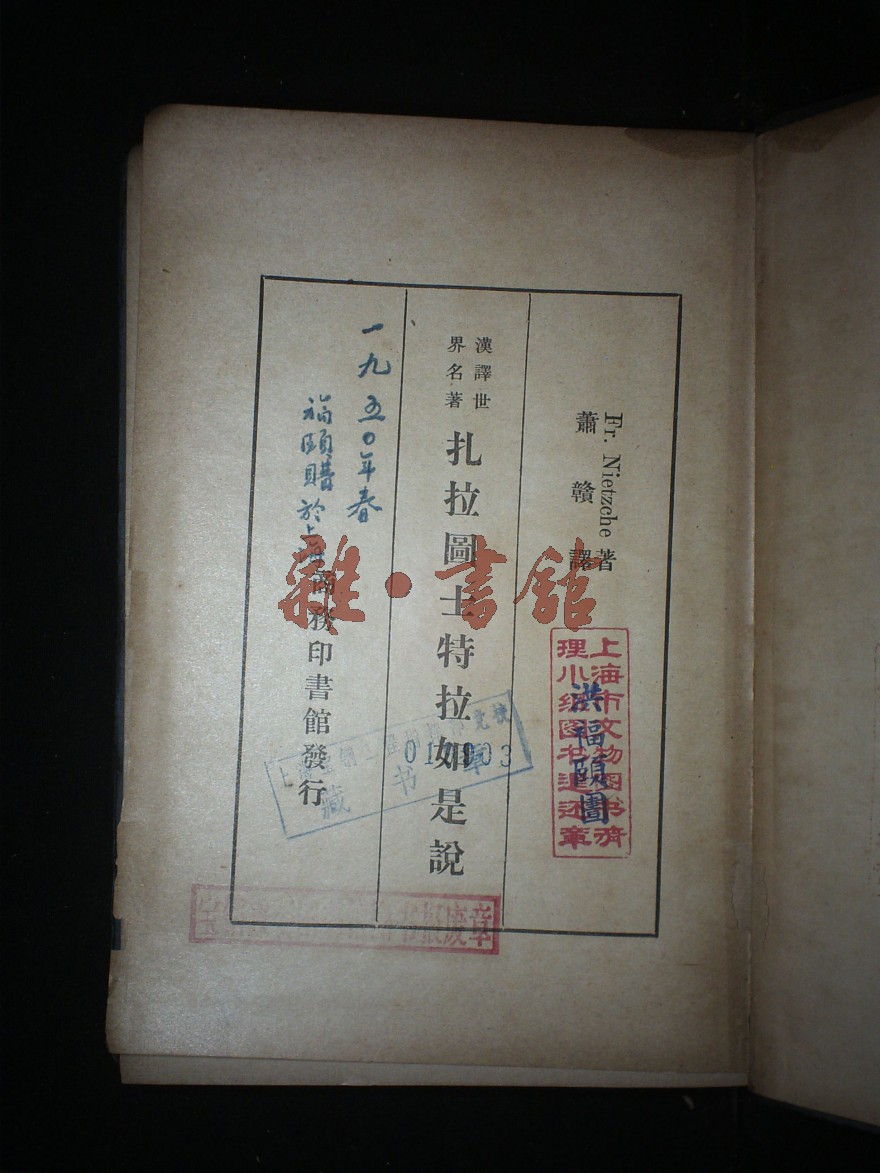 Fr. Nietzche 著
蕭贛譯
漢譯世
界名著
扎拉圖士特拉如是說
商務印書館發行
一九五〇年春
福頤購於上海
上海市文物图书清
理小组图书退还章
洪福頤圖
藏书章
雜·書館